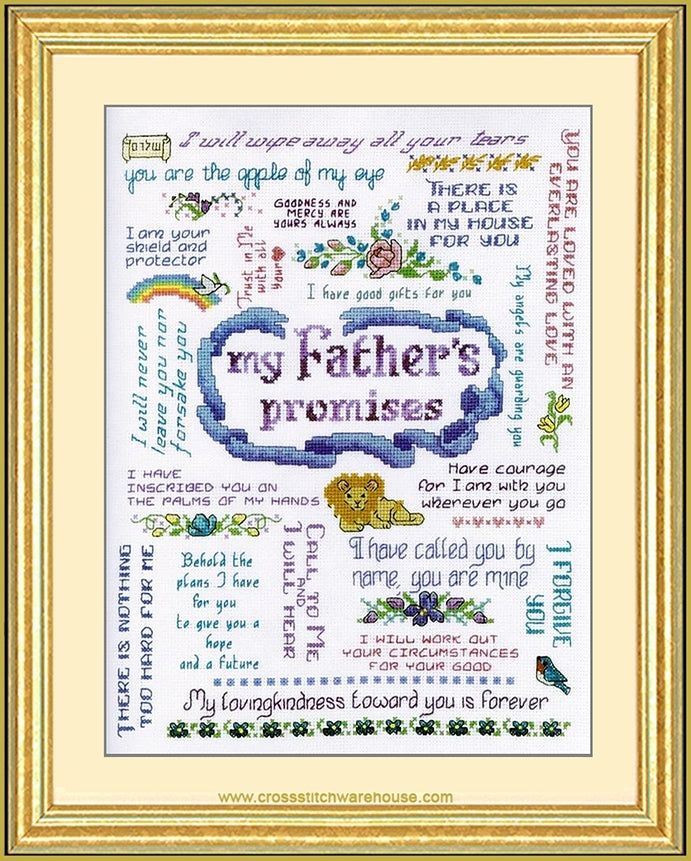 שלום
I will wipe away all your tears
you are the apple of my eye
GOODNESS AND
MERCY ARE
YOURS ALWAYS
THERE IS
A PLACE
IN MY HOUSE
FOR YOU
YOU ARE LOVED WITH AN
EVERLASTING LOVE
I am your
shield and
protector
Trust in Me
with all
your
I have good gifts for you
My angels are guarding you
I will never
leave you nor
forsake you
my Father's
promises
I HAVE
INSCRIBED YOU ON
THE PALMS OF MY HANDS
Have courage
for I am with you
wherever you go
THERE IS NOTHING
TOO HARD FOR ME
Behold the
plans I have
for you
to give you a
hope
and a future
CALL TO ME
AND
I WILL HEAR
I have called you by
name, you are mine
I FORGIVE
YOU
I WILL WORK OUT
YOUR CIRCUMSTANCES
FOR YOUR GOOD
My lovingkindness toward you is forever
www.crossstitchwarehouse.com